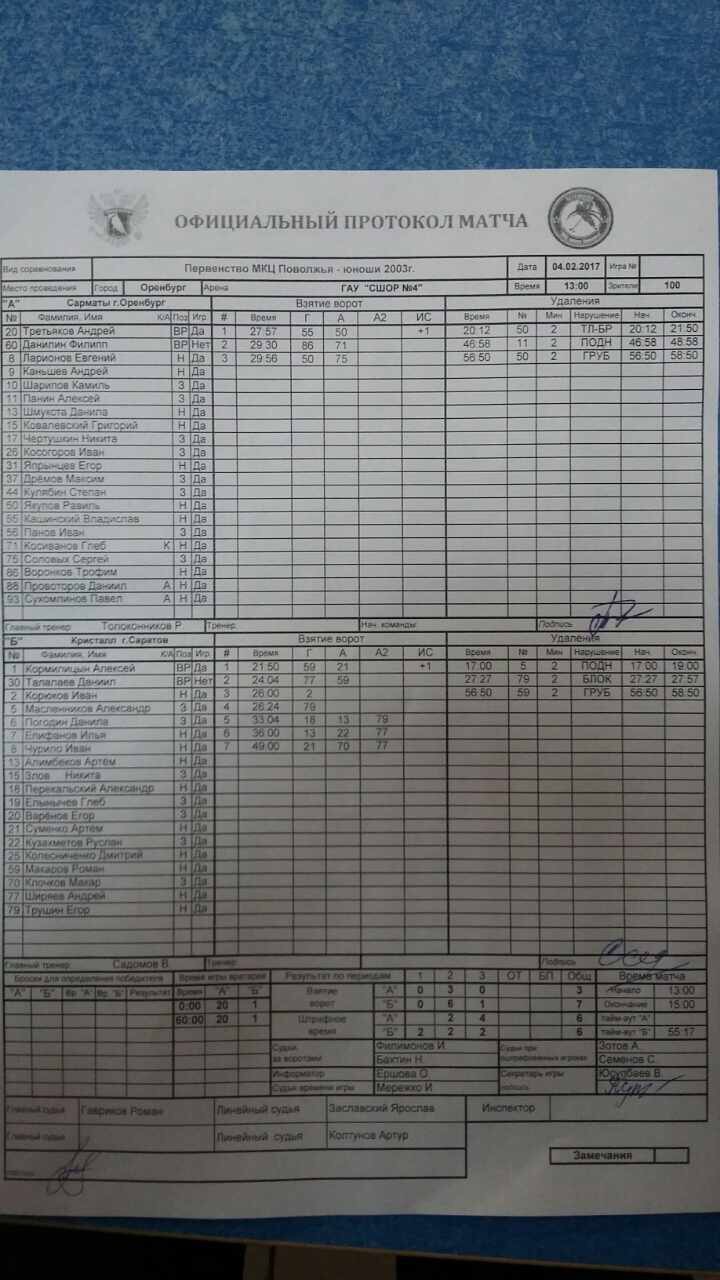 ОФИЦИАЛЬНЫЙ ПРОТОКОЛ МАТЧА
Вид соревнования Первенство МКЦ Поволжья - юноши 2003г. Дата 04.02.2017 Игра №
Место проведения Город Оренбург Арена ГАУ "СШОР №4" Время 13:00 Зрители 100
"А" Сарматы г.Оренбург Взятие ворот Удаления
№ Фамилия, Имя К/А Поз Игр. # Время Г А А2 ИС Время № Мин Нарушение Нач. Оконч.
20 Третьяков Андрей ВР Да 1 27:57 55 50 +1 20:12 50 2 ТЛ-БР 20:12 21:50
60 Данилин Филипп ВР Нет 2 29:30 86 71 46:58 11 2 ПОДН 46:58 48:58
8 Ларионов Евгений Н Да 3 29:56 50 75 56:50 50 2 ГРУБ 56:50 58:50
9 Каньшев Андрей Н Да
10 Шарипов Камиль З Да
11 Панин Алексей З Да
13 Шмукста Данила Н Да
15 Ковалевский Григорий Н Да
17 Чертушкин Никита З Да
26 Косогоров Иван З Да
31 Япрынцев Егор Н Да
37 Дрёмов Максим З Да
44 Кулябин Степан З Да
50 Якупов Равиль Н Да
55 Кашинский Владислав Н Да
56 Панов Иван З Да
71 Косиванов Глеб К Н Да
75 Соловых Сергей З Да
86 Воронков Трофим Н Да
88 Провоторов Даниил А Н Да
93 Сухомлинов Павел А Н Да
Главный тренер Толоконников Р. Тренер: Нач. команды: Подпись
"Б" Кристалл г.Саратов Взятие ворот Удаления
№ Фамилия, Имя К/А Поз Игр. # Время Г А А2 ИС Время № Мин Нарушение Нач. Оконч.
1 Кормилицын Алексей ВР Да 1 21:50 59 21 +1 17:00 5 2 ПОДН 17:00 19:00
30 Талалаев Даниил ВР Нет 2 24:04 77 59 27:27 79 2 БЛОК 27:27 27:57
2 Корюков Иван Н Да 3 26:00 2 56:50 59 2 ГРУБ 56:50 58:50
5 Масленников Александр З Да 4 26:24 79
6 Погодин Данила З Да 5 33:04 18 13 79
7 Елифанов Илья Н Да 6 36:00 13 22 77
8 Чурило Иван Н Да 7 49:00 21 70 77
13 Алимбеков Артём Н Да
15 Злов Никита З Да
18 Перекальский Александр Н Да
19 Елынычев Глеб З Да
20 Варёнов Егор З Да
21 Суменко Артём Н Да
22 Кузахметов Руслан З Да
25 Колесниченко Дмитрий Н Да
59 Макаров Роман Н Да
70 Клочков Макар З Да
77 Ширяев Андрей Н Да
79 Трушин Егор Н Да
Главный тренер Садомов В. Тренер: Подпись
Броски для определения победителя Время игры вратарей Результат по периодам 1 2 3 ОТ БП Общ Время матча
"А" "Б" Вр. "А" Вр. "Б" Результат Время "А" "Б" Взятие "А" 0 3 0 3 Начало 13:00
0:00 20 1 ворот "Б" 0 6 1 7 Окончание 15:00
60:00 20 1 Штрафное "А" 2 4 6 тайм-аут "А"
время "Б" 2 2 2 6 тайм-аут "Б" 55:17
Судьи за воротами Филимонов И. Судьи при оштрафованных игроках Зотов А.
Бахтин Н. Семенов С.
Информатор Ершова О. Секретарь игры Юсупбаев В.
Судья времени игры Мережко И. подпись
Главный судья Гавриков Роман Линейный судья Заславский Ярослав Инспектор
Главный судья Линейный судья Колтунов Артур
подпись
Замечания